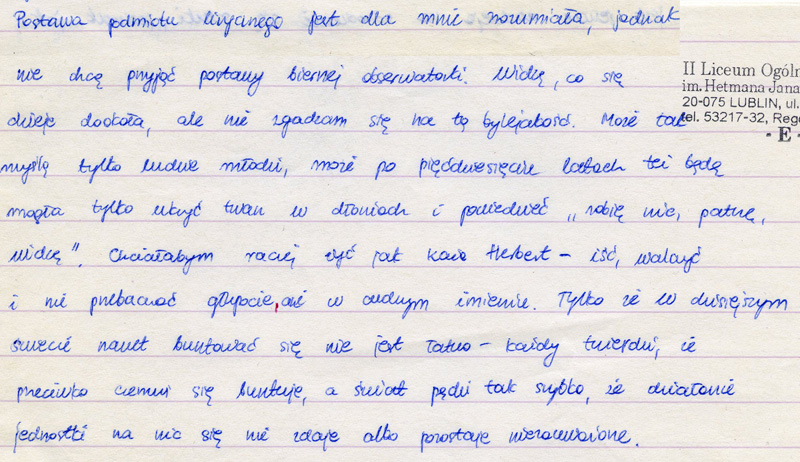 Postawa podmiotu lirycznego jest dla mnie zrozumiała, jednak
nie chcę przyjąć postawy biernej obserwatorki. Widzę, co się
II Liceum Ogóln
im. Hetmana Jana
dzieje dookoła, ale nie zgadzam się na tę bylejakość. Może tak
20-075 LUBLIN, ul.
tel. 53217-32, Rego
- E -
myślą tylko ludzie młodzi, może po pięćdziesięciu latach też będę
mogła tylko ukryć twarz w dłoniach i powiedzieć „robię nic, patrzę,
widzę". Chciałabym raczej żyć jak każe Herbert – iść, walczyć
i nie przebaczać głupocie, ani w cudzym imieniu. Tylko że w dzisiejszym
świecie nawet buntować się nie jest łatwo – każdy twierdzi, że
przeciwko czemuś się buntuje, a świat pędzi tak szybko, że działanie
jednostki na nic się nie zdaje albo pozostaje niezauważone.